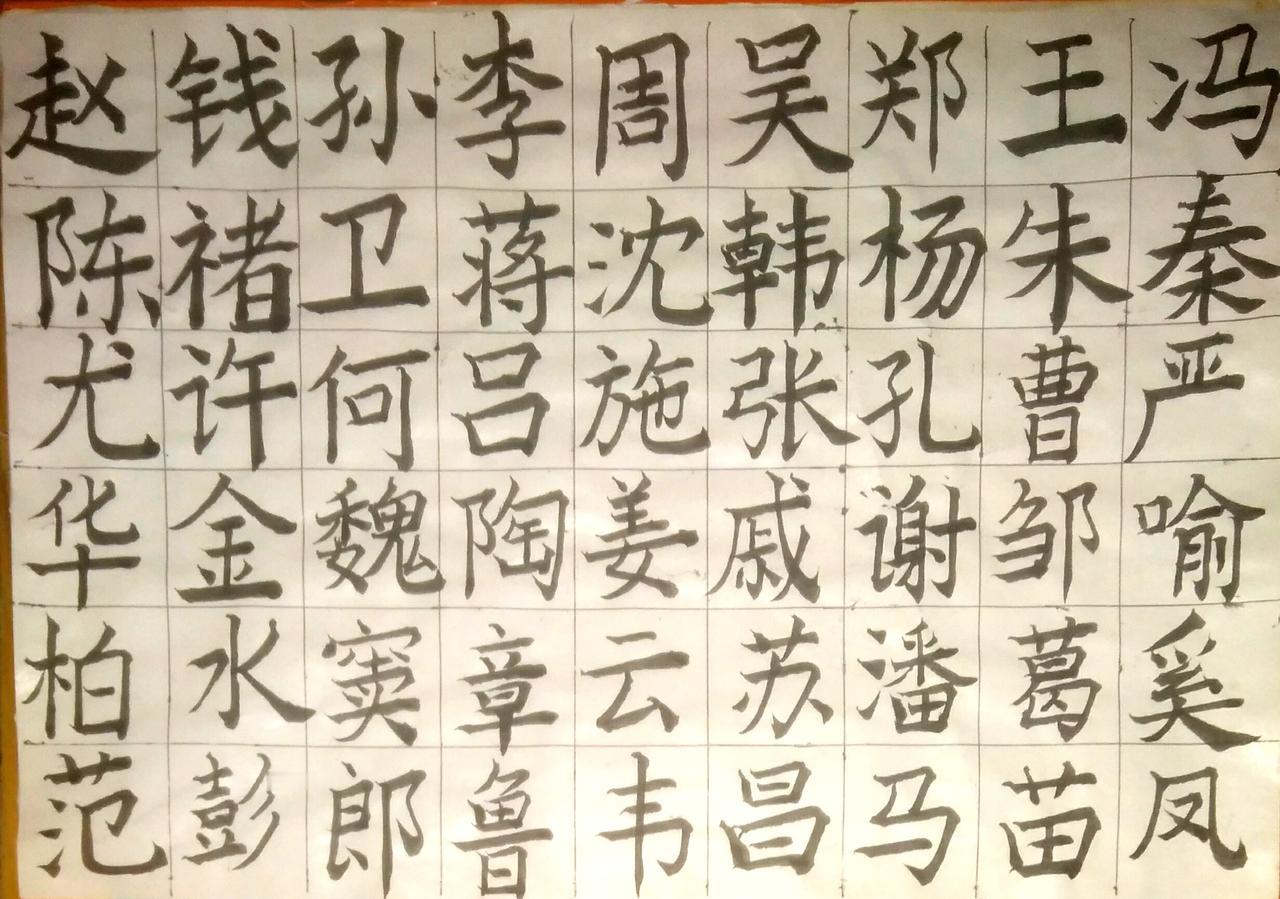 赵钱孙李周吴郑王冯
陈褚卫蒋沈韩杨朱秦
尤许何吕施张孔曹严
华金魏陶姜戚谢邹喻
柏水窦章云苏潘葛奚
范彭郎鲁韦昌马苗凤